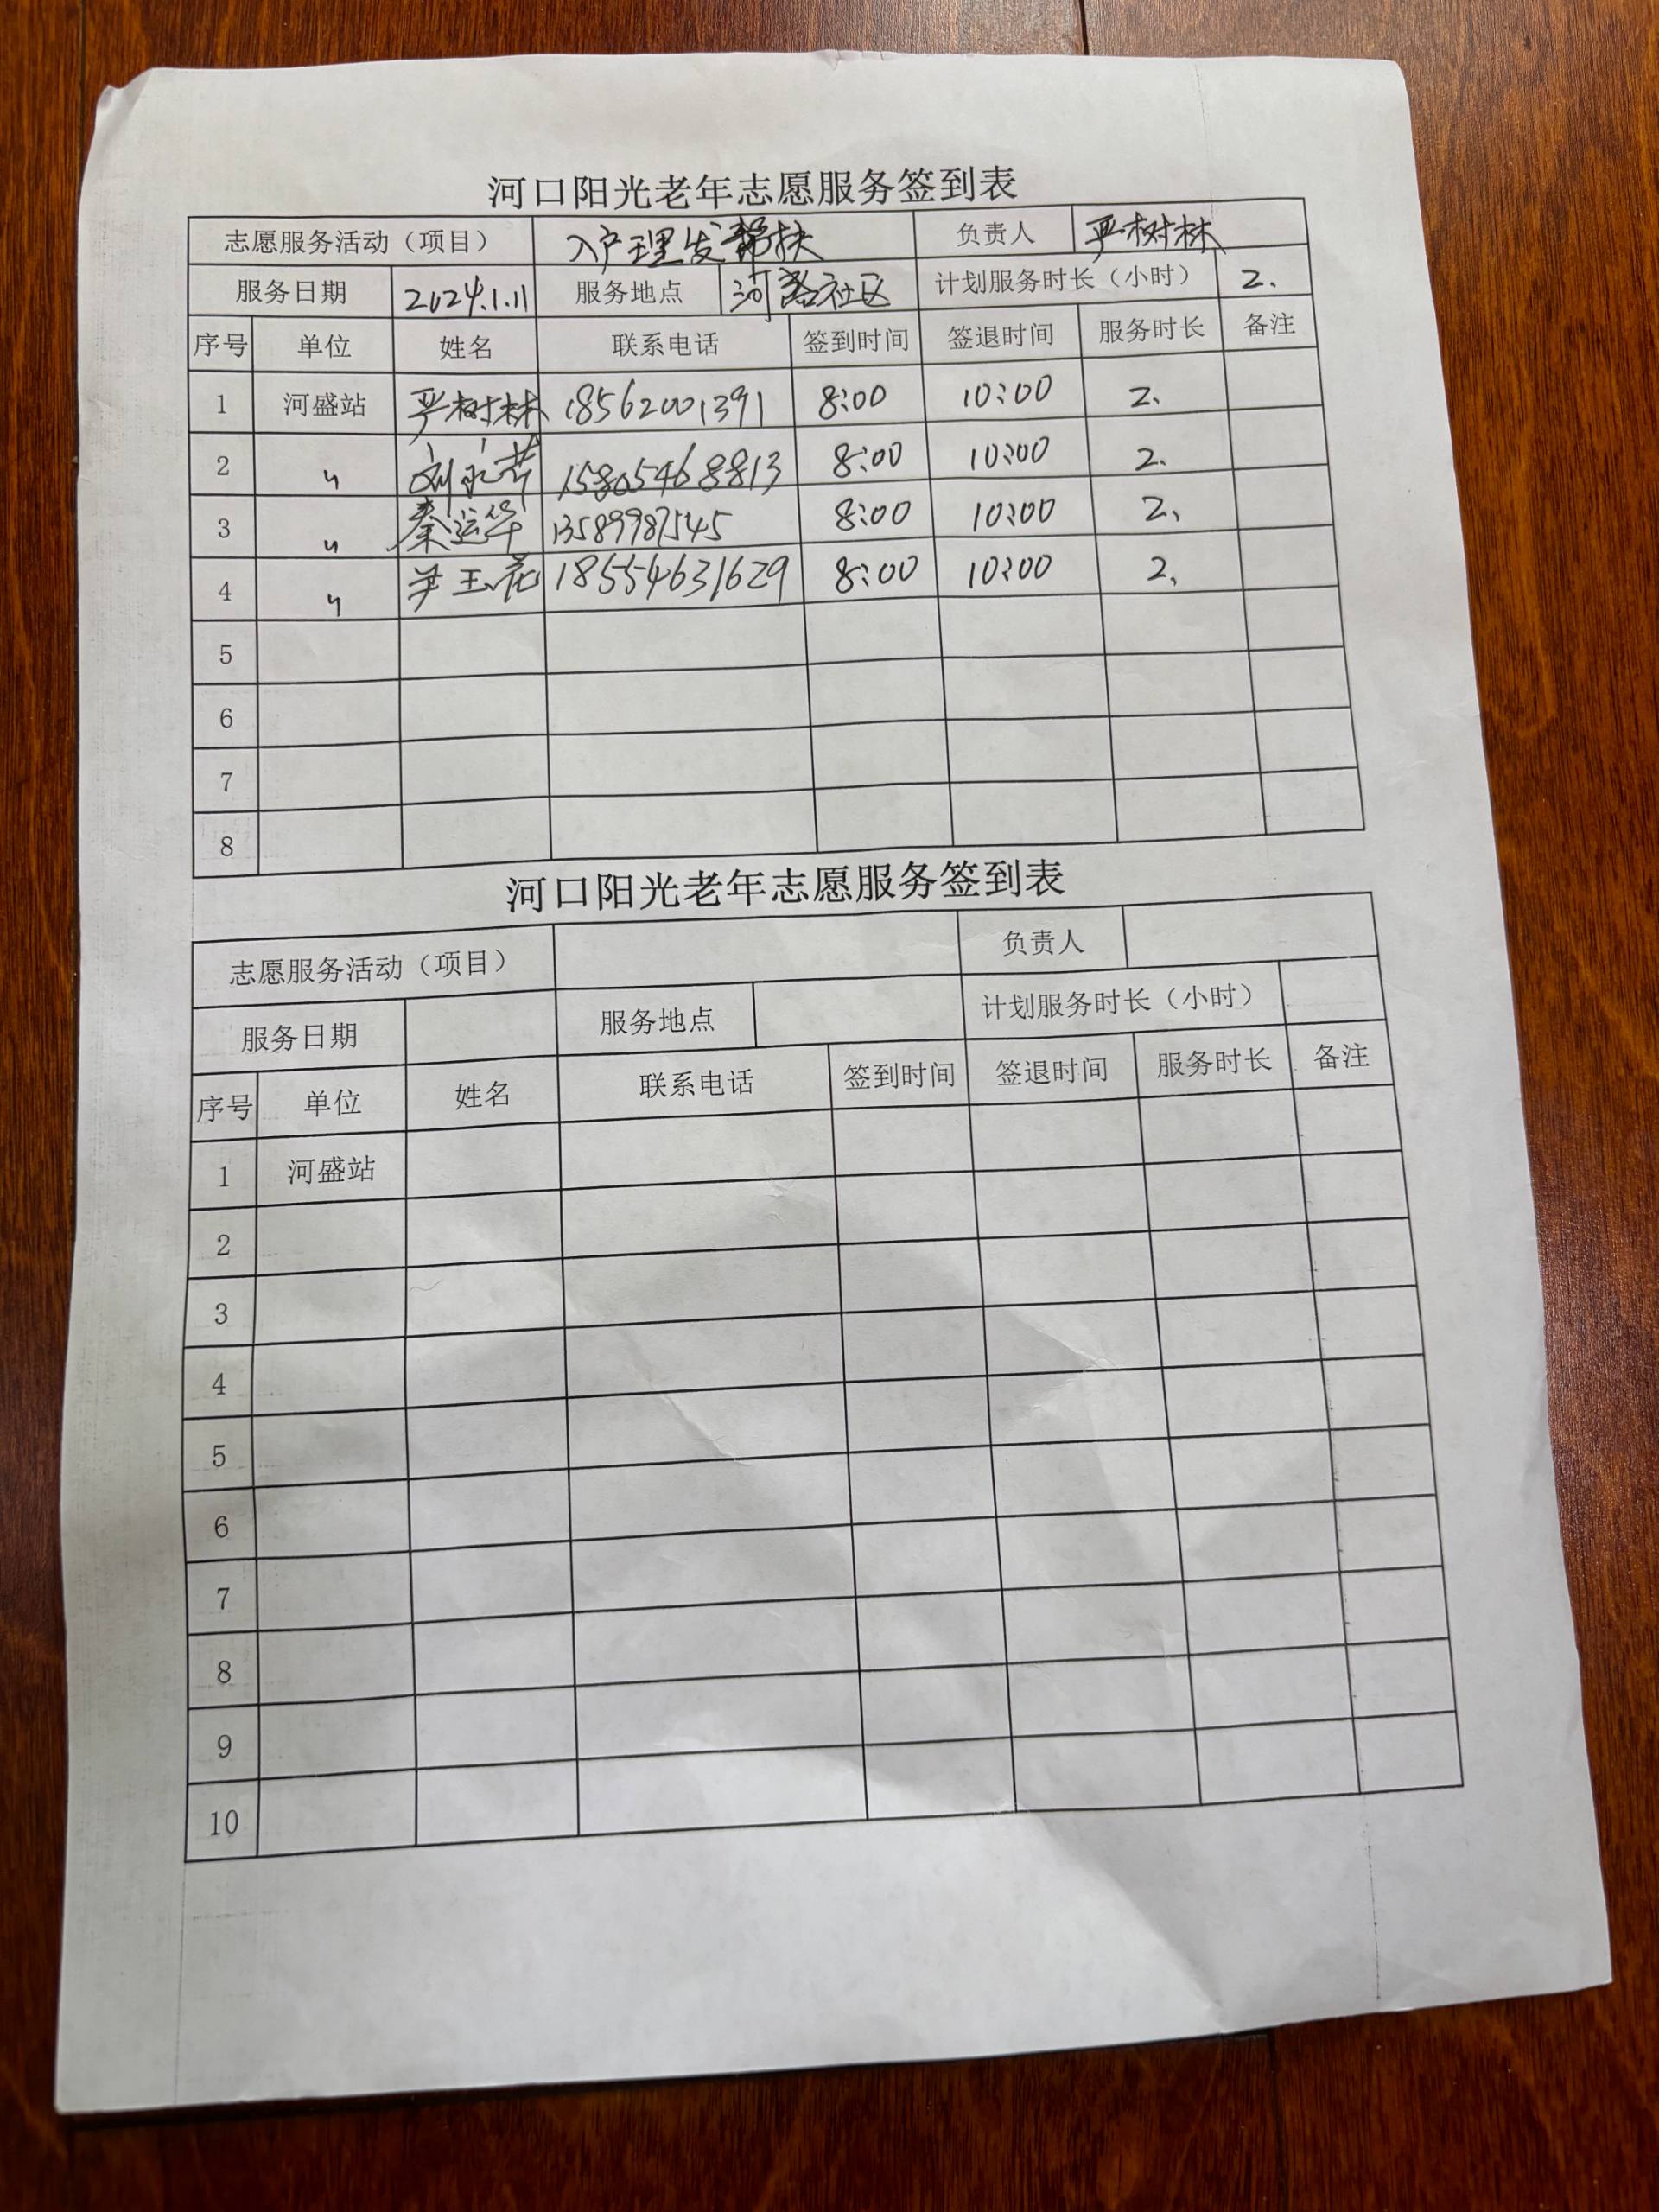 河口阳光老年志愿服务签到表
志愿服务活动（项目） 入户理发帮扶 负责人 严树林
服务日期 2024.1.11 服务地点 河社区 计划服务时长（小时） 2.
序号 单位 姓名 联系电话 签到时间 签退时间 服务时长 备注
1 河盛站 严树林 18562001391 8:00 10:00 2.
2 〃 刘永芹 15805468813 8:00 10:00 2.
3 〃 秦运华 13589987545 8:00 10:00 2、
4 〃 尹玉花 18554631629 8:00 10:00 2、
5
6
7
8
河口阳光老年志愿服务签到表
志愿服务活动（项目） 负责人
服务日期 服务地点 计划服务时长（小时）
序号 单位 姓名 联系电话 签到时间 签退时间 服务时长 备注
1 河盛站
2
3
4
5
6
7
8
9
10